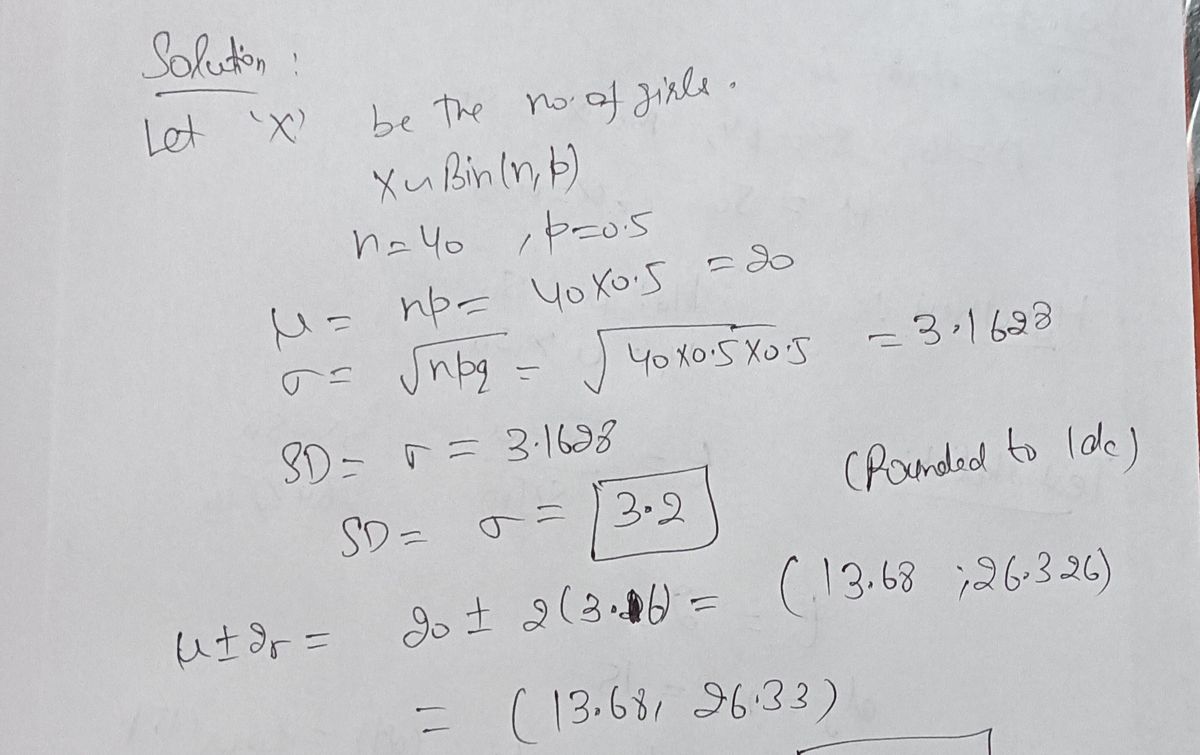 Solution :
Let 'X' be the no. of girls.
X ~ Bin(n, p)
n = 40 , p = 0.5
μ = np = 40 x 0.5 = 20
σ = √npq = √40 x 0.5 x 0.5 = 3.1628
SD = σ = 3.1628
SD = σ = 3.2 (Rounded to 1dc)
μ ± 2σ = 20 ± 2(3.16) = (13.68 ; 26.326)
= (13.68, 26.33)